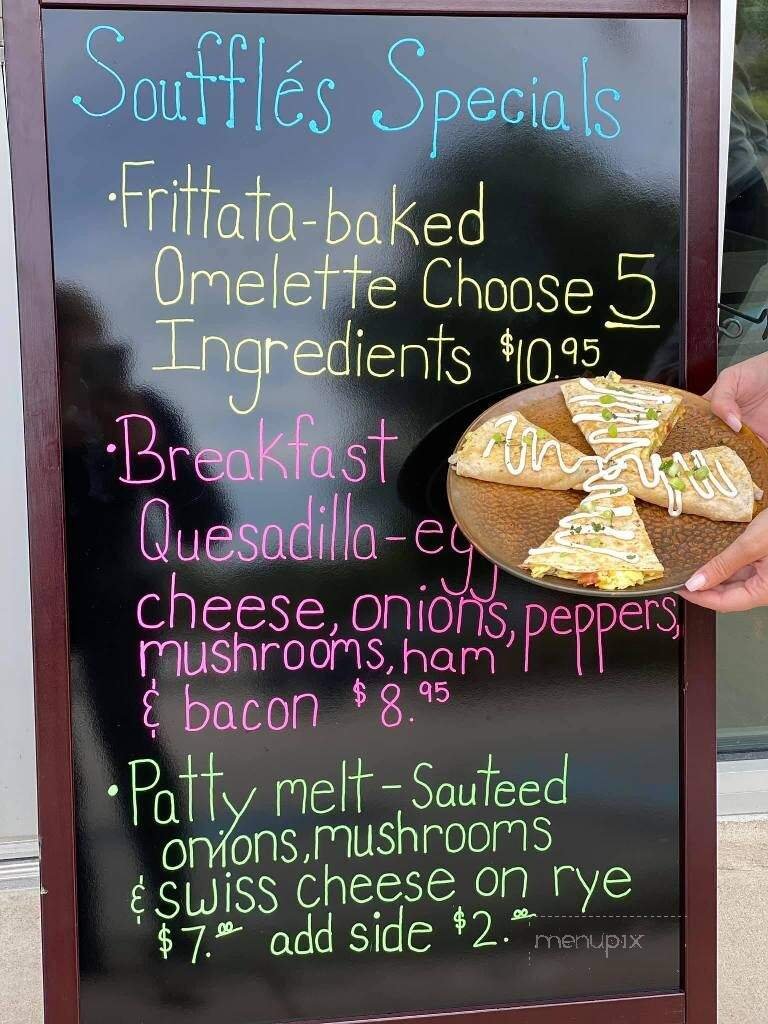 Soufflés Specials
·Frittata-baked
Omelette Choose 5
Ingredients $10.95
·Breakfast
Quesadilla-egg
cheese, onions, peppers,
mushrooms, ham
& bacon $8.95
·Patty melt-Sauteed
onions, mushrooms
& swiss cheese on rye
$7.00 add side $2.00
menupix